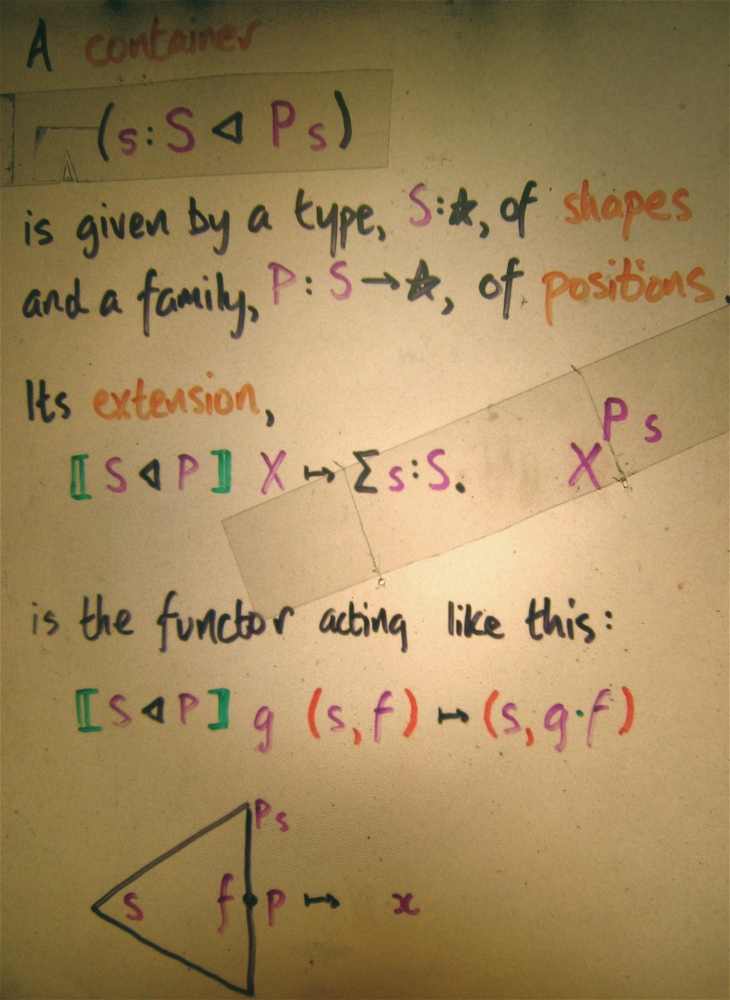 A container
(s:S ◁ P s)
is given by a type, S:★, of shapes
and a family, P:S→★, of positions.
Its extension,
⟦S ◁ P⟧ X ↦ Σs:S. X^P s
is the functor acting like this:
⟦S ◁ P⟧ g (s,f) ↦ (s,g·f)
Ps
s f p ↦ x